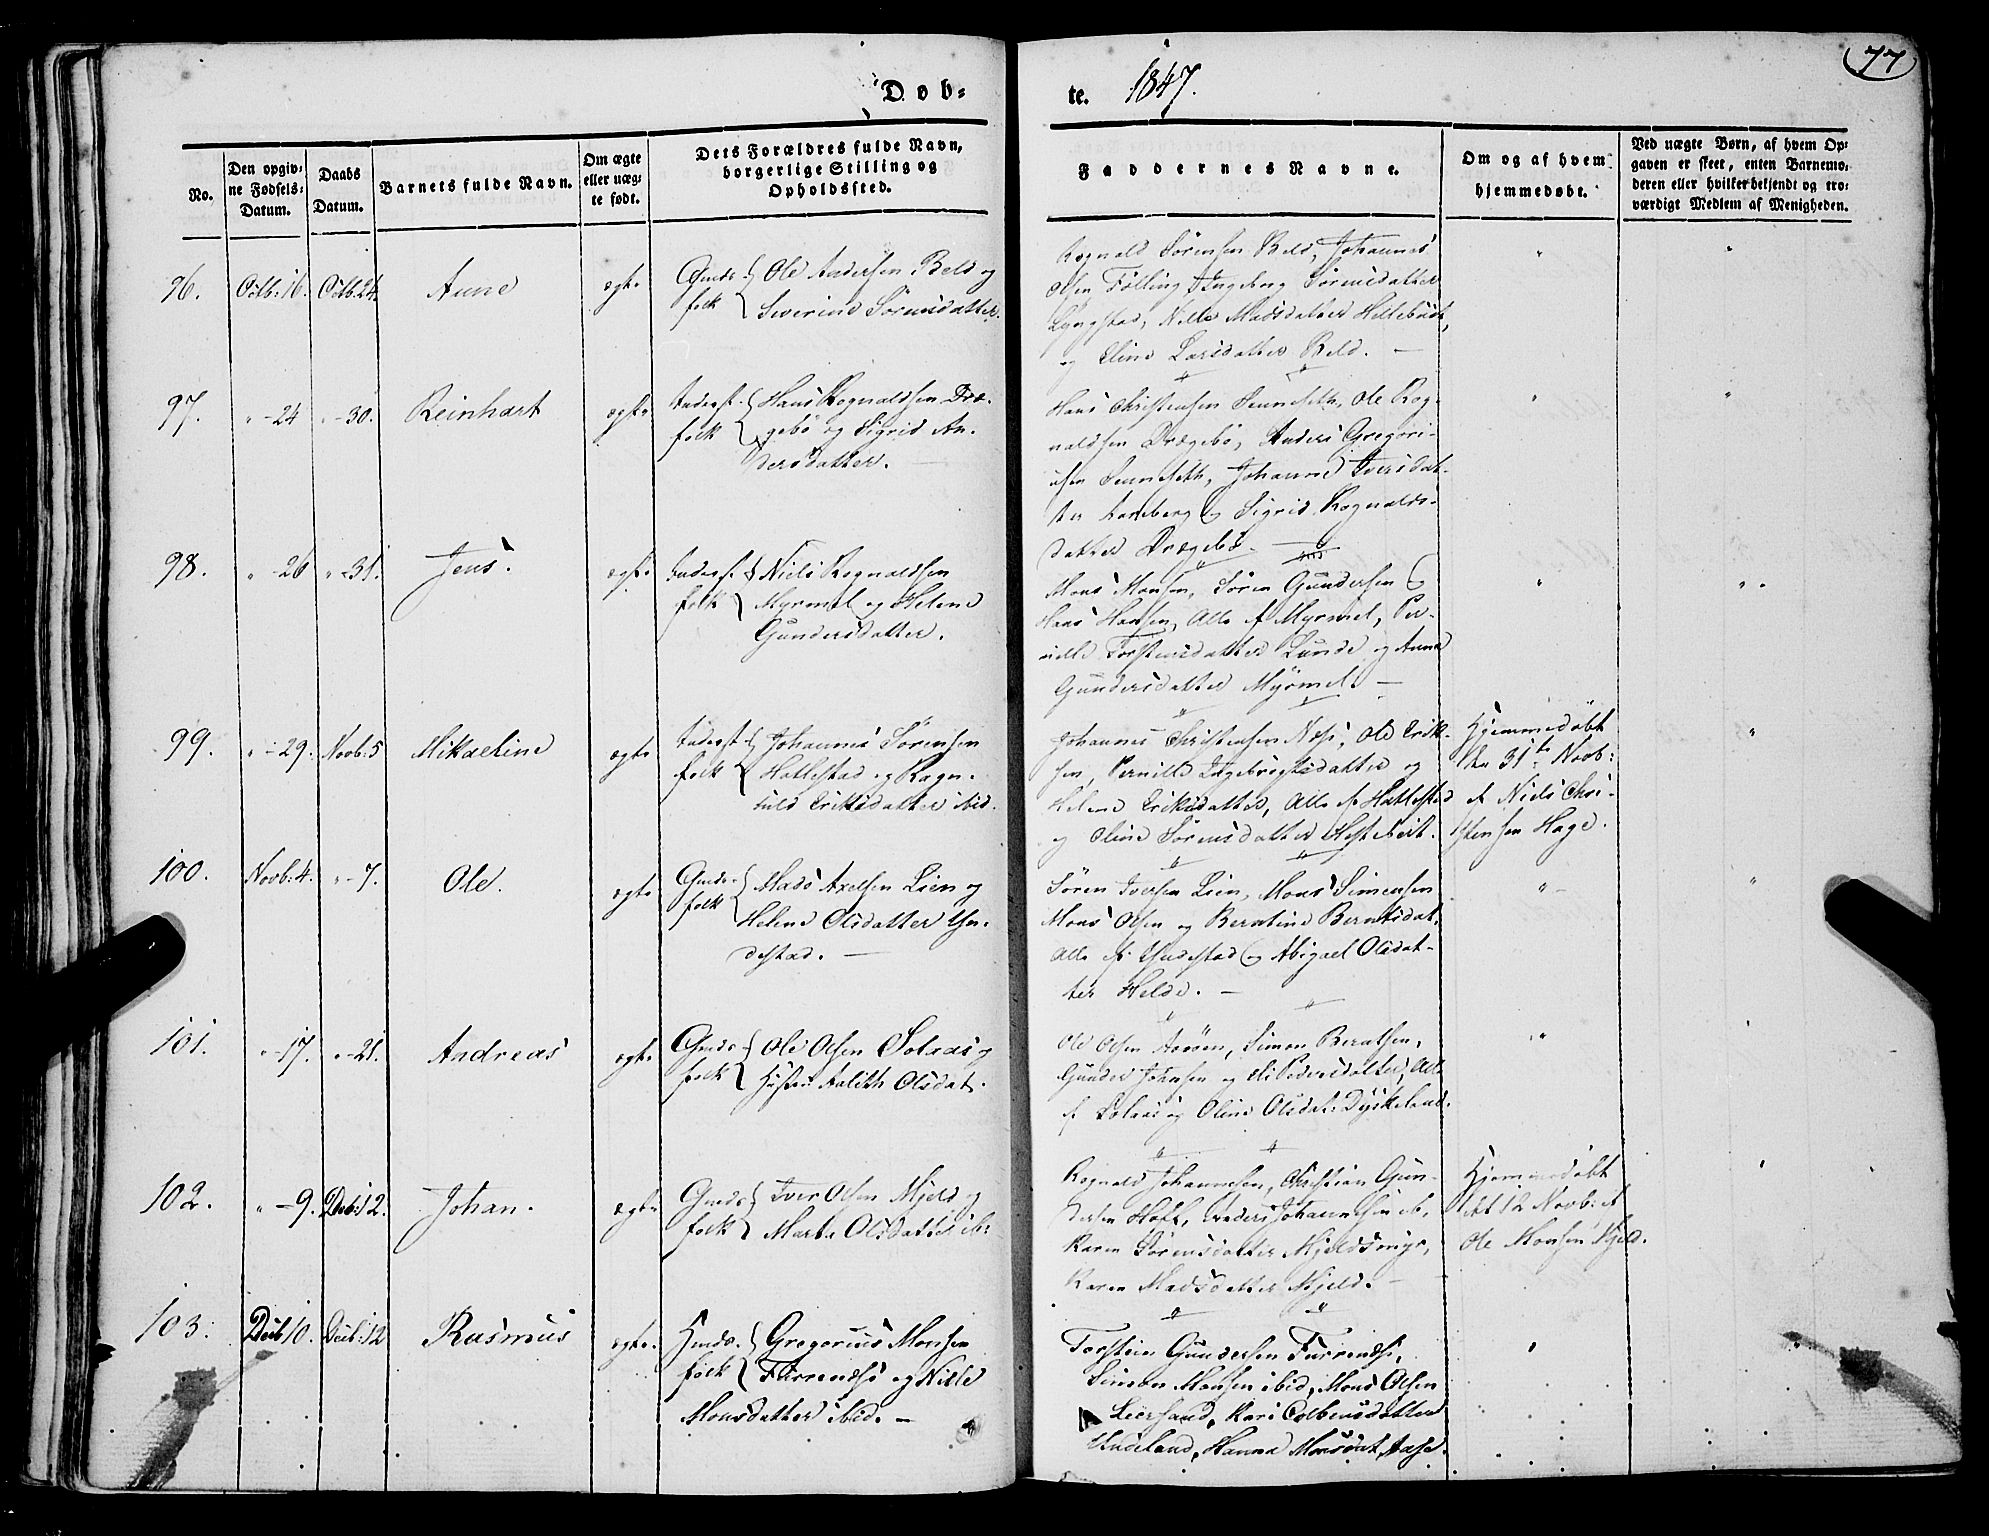 77
Døb-
te. 1847.
No.
Den opgiv-
ne Fødsels-
Datum.
Daabs
Datum.
Barnets fulde Navn.
Om ægte
eller uæg-
te født.
Dets Forældres fulde Navn,
borgerlige Stilling og
Opholdssted.
Faddernes Navne.
Om og af hvem
hjemmedøbt.
Ved uægte Børn, af hvem Op-
gaven er skeet, enten Barnemo-
deren eller hvilket bekjendt og tro-
værdigt Medlem af Menigheden.
96. Octb: 16. Octb. 24 Anne ægte
Gmds-
folk
Ole Andersen Beld og
Severine Sörensdatter.
Rognald Sörensen Beld, Johannes
Olsen Tölling, Ingeborg Sörensdatter
Lyngstad, Nille Madsdatter
og Eline Larsdatter Beld. —
97. " - 24 " - 30. Reinhart ægte
Inderst-
folk
Hans Rognaldsen Dræ-
gebö og Sigrid An-
dersdatter. —
Hans Christensen Ole Rog-
naldsen Drægebö, Anders Gregori-
usen Johanne Iversdat-
ter og Sigrid Rognalds-
datter Drægebö. —
98. " - 26 " - 31. Jens. ægte
Inderst-
folk
Niels Rognaldsen
Myrmel og Helene
Gundersdatter.
Mons Monsen, Sören Gundersen og
Hans Hansen, Alle af Myrmel, Per-
nille Torstensdatter Lunde og Anne
Gundersdatter Myrmel. —
99. " - 29. Novb: 5 Mikaeline ægte
Inderst-
folk
Johannes Sörensen
Hatlestad og Ragn-
hild Eriksdatter ibid.
Johannes Christensen Nesse, Ole Erik-
sen, Pernille Ingebrigtsdatter og
Helene Eriksdatter, Alle af Hatlestad
og Oline Sörensdatter
Hjemmedöbt
den 31te Novb:
af Niels Chri-
stensen Hage.
100. Novb: 4. " - 7. Ole. ægte
Gmds-
folk
Mads Axelsen Lien og
Helene Olsdatter Yn-
destad. —
Sören Iversen Lien, Mons Simensen
Mons Olsen og Berntine Berntsdat.
Alle af Yndestad og Abigael Olsdat-
ter Helde. —
101. " - 17. " - 21. Andreas ægte
Gmds-
folk
Ole Olsen Solaas og
Hustru Aalith Olsdat.
Ole Olsen Simon Berntsen,
Gunder Johnsen og Eli Pedersdatter, Alle
af Solaas og Oline Olsdat: Dyskeland.
102. " - 9. Decb: 12. Johan. ægte
Gmds-
folk
Iver Olsen Mjeld og
Marte Olsdatter ib:
Rognald Johannesen, Christian Gun-
dersen Hoff, Anders Johannesen ib,
Karen Sörensdatter Mjeldsmyr,
Karen Madsdatter Mjeld. —
Hjemmedöbt
dt 12 Novb: af
Ole Monsen Mjeld.
103. Decb 10. Decb: 12 Rasmus ægte.
Hmds-
folk
Gregorius Monsen
Furrenæs og Nille
Monsdatter ibid. —
Torstein Gundersen Furrenæs,
Simon Monsen ibid, Mons Olsen
Leersand, Kari Colbensdatter
Yndeland, Hanna Monsdat, Aase.